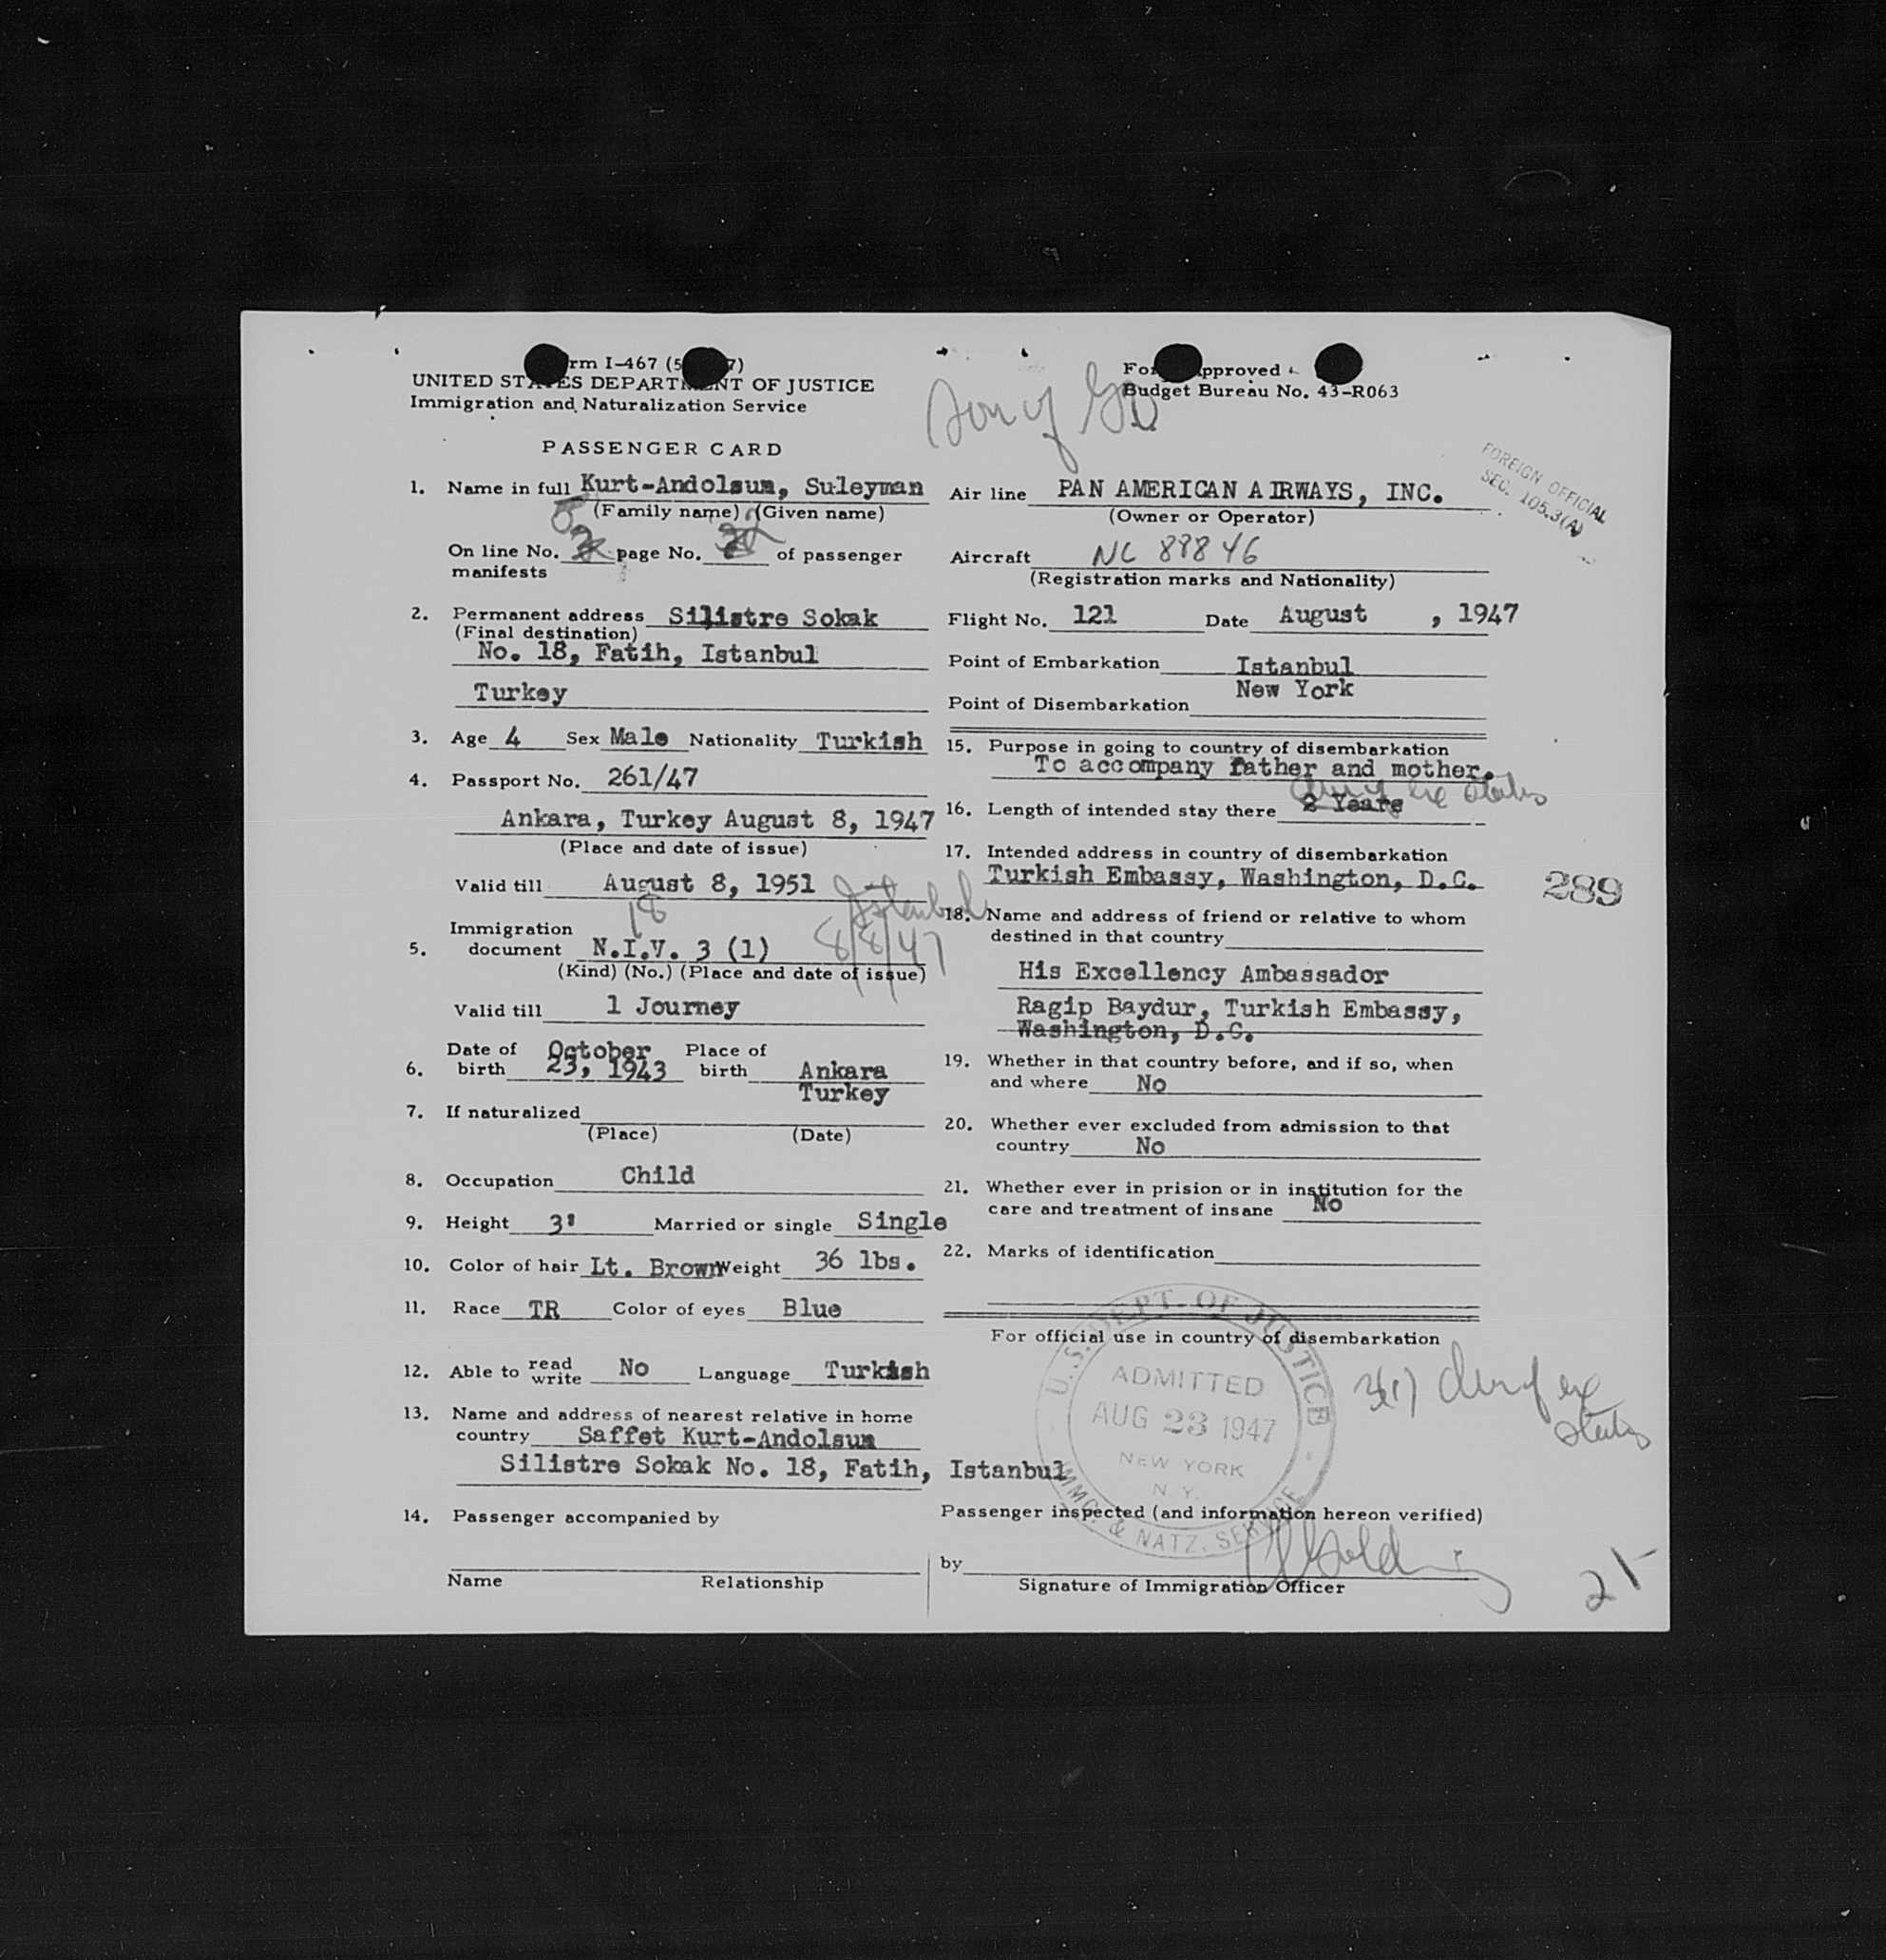 rm I-467 (5 7)
UNITED STATES DEPARTMENT OF JUSTICE
Immigration and Naturalization Service
PASSENGER CARD
1. Name in full Kurt-Andolsum, Suleyman
(Family name) (Given name)
On line No. page No. of passenger
manifests
2. Permanent address Silistre Sokak
(Final destination)
No. 18, Fatih, Istanbul
Turkey
3. Age 4 Sex Male Nationality Turkish
4. Passport No. 261/47
Ankara, Turkey August 8, 1947
(Place and date of issue)
Valid till August 8, 1951
18 Istanbul
Immigration
5. document N.I.V. 3 (1) 8/8/47
(Kind) (No.) (Place and date of issue)
Valid till 1 Journey
Date of October Place of
6. birth 23, 1943 birth Ankara
Turkey
7. If naturalized
(Place) (Date)
8. Occupation Child
9. Height 3' Married or single Single
10. Color of hair Lt. Brown Weight 36 lbs.
11. Race TR Color of eyes Blue
12. Able to read write No Language Turkish
13. Name and address of nearest relative in home
country Saffet Kurt-Andolsum
Silistre Sokak No. 18, Fatih, Istanbul
14. Passenger accompanied by
Name Relationship
Son of
For pproved
Budget Bureau No. 43-R063
FOREIGN OFFICIAL
SEC. 105.3(A)
Air line PAN AMERICAN AIRWAYS, INC.
(Owner or Operator)
Aircraft NC 88846
(Registration marks and Nationality)
Flight No. 121 Date August , 1947
Point of Embarkation Istanbul
New York
Point of Disembarkation
15. Purpose in going to country of disembarkation
To accompany father and mother.
16. Length of intended stay there 2 Years
17. Intended address in country of disembarkation
Turkish Embassy, Washington, D.C.
289
18. Name and address of friend or relative to whom
destined in that country
His Excellency Ambassador
Ragip Baydur, Turkish Embassy,
Washington, D.C.
19. Whether in that country before, and if so, when
and where No
20. Whether ever excluded from admission to that
country No
21. Whether ever in prision or in institution for the
care and treatment of insane No
22. Marks of identification
For official use in country of disembarkation
U.S. DEPT. OF JUSTICE
ADMITTED
AUG 23 1947
NEW YORK
N.Y.
IMMG. & NATZ. SERVICE
3(1)
status
Passenger inspected (and information hereon verified)
by
Signature of Immigration Officer
21